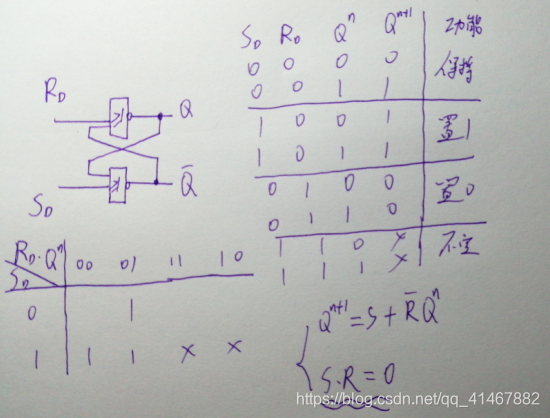 S_D R_D Q^n Q^{n+1} 功能
0 0 0 0 保持
0 0 1 1
1 0 0 1 置1
1 0 1 1
0 1 0 0 置0
0 1 1 0
1 1 0 × 不定
1 1 1 ×
R_D ≥1 Q
S_D ≥1 Q̄
R_D·Q^n 00 01 11 10
S_D
0 1
1 1 1 × ×
Q^{n+1} = S + R̄Q^n
S·R = 0
https://blog.csdn.net/qq_41467882